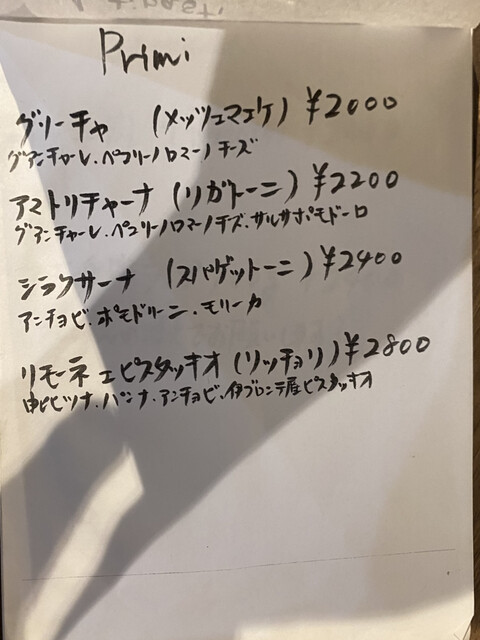 Primi
グリーチャ (メッツェマニケ) ¥2000
グアンチャーレ、ペコリーノロマーノチーズ
アマトリチャーナ (リガトーニ) ¥2200
グアンチャーレ、ペコリーノロマーノチーズ、サルサポモドーロ
シラクサーナ (スパゲットーニ) ¥2400
アンチョビ、ポモドリーニ、モリーカ
リモーネ エ ピスタッキオ (リッチョリ) ¥2800
パンナ、アンチョビ、伊ブロンテ産ピスタッキオ